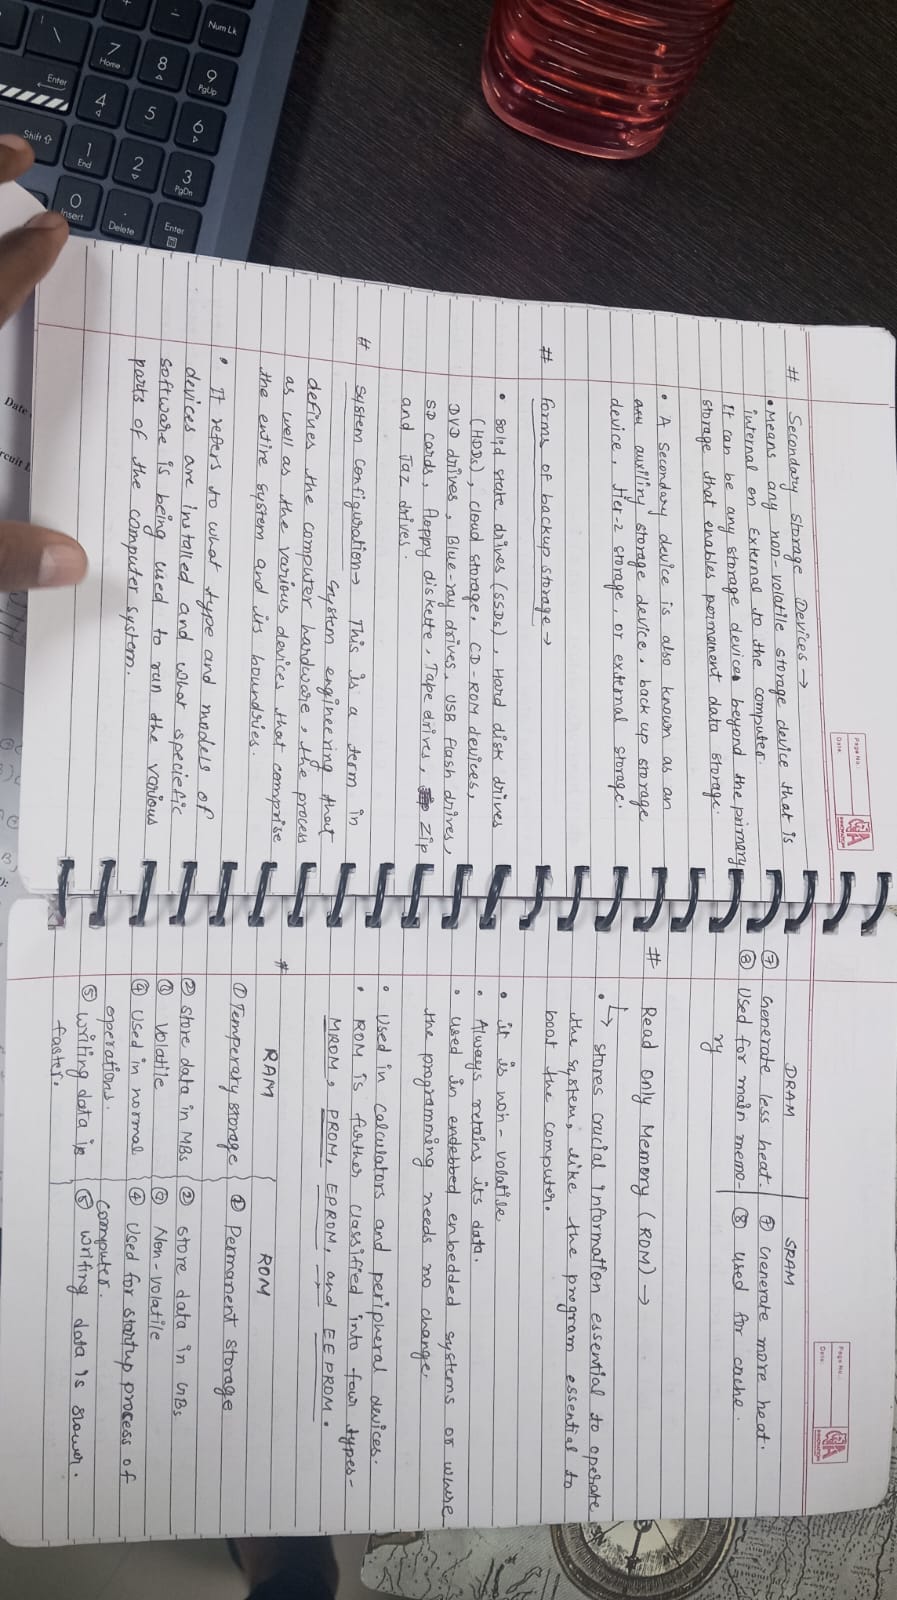 Page No.:
Date:
INNOVATION
# Secondary Storage Devices →
• Means any non-volatile storage device that is
internal on External to the computer.
It can be any storage devices beyond the primary
storage that enables permanent data storage.
• A Secondary device is also known as an
auxiliry storage device. back up storage
device, tier-2 storage, or external storage.
# Forms of backup storage →
• Solid state drives (SSDs), Hard disk drives
(HDDs), cloud storage, CD-ROM devices,
DVD drives, Blue-ray drives, USB flash drives,
SD cards, floppy diskette, Tape drives, Zip
and Jaz drives.
# System Configuration → This is a term in
System engineering that
defines the computer hardware, the process
as well as the various devices that comprise
the entire system and its boundries.
• It refers to what type and models of
devices are installed and what speciefic
software is being used to run the various
parts of the computer system.
Page No.:
Date:
INNOVATION
DRAM SRAM
⑦ Generate less heat. ⑦ Generate more heat.
⑧ Used for main memo- ⑧ used for cache.
ry
# Read Only Memory (ROM) →
• ↳ stores crucial information essential to operate
the system, like the program essential to
boot the computer.
• it is non-volatile
• Always retains its data.
• used in endebbed enbedded systems or where
the programming needs no change
• Used in calculators and peripheral devices.
• ROM is further classified into four types-
MROM, PROM, EPROM, and EEPROM.
# RAM ROM
① Temperary storage ① Permanent storage
② store data in MBs ② store data in GBs
③ Volatile ③ Non-volatile
④ Used in normal ④ Used for startup process of
operations. computer.
⑤ writing data is ⑤ writing data is slower.
faster.
Num Lk
9
PgUp
6
3
PgDn
Enter
8
5
2
Delete
7
Home
4
1
End
0
Insert
Enter
Shift
Date